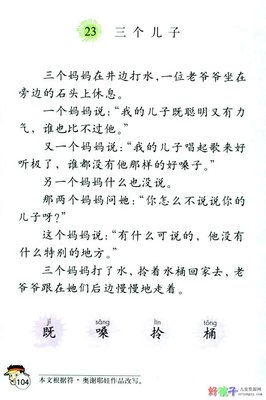 23 三个儿子
三个妈妈在井边打水，一位老爷爷坐在
旁边的石头上休息。
一个妈妈说：“我的儿子既聪明又有力
气，谁也比不过他。”
又一个妈妈说：“我的儿子唱起歌来好
听极了，谁都没有他那样的好嗓子。”
另一个妈妈什么也没说。
那两个妈妈问她：“你怎么不说说你的
儿子呀？”
这个妈妈说：“有什么可说的，他没有
什么特别的地方。”
三个妈妈打了水，拎着水桶回家去，老
爷爷跟在她们后边慢慢地走着。
jì sǎng līn tǒng
既 嗓 拎 桶
104
本文根据符·奥谢耶娃作品改写。
好孩子